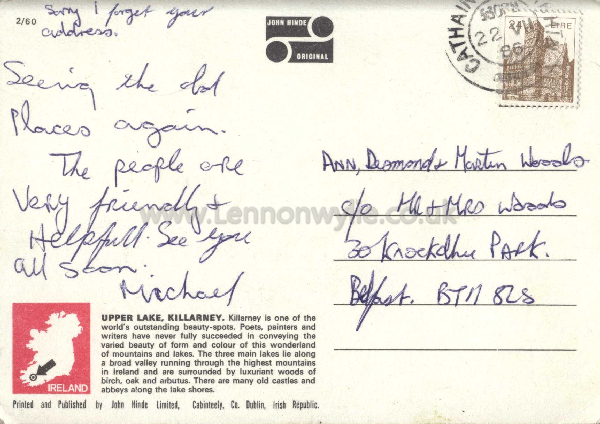 Sorry I forget your
address.
2/60
JOHN HINDE
ORIGINAL
22 VII
24
EIRE
Seeing the old
Places again.
The people are
Very friendly +
Helpfull. See you
all soon.
Michael
Ann, Desmond & Martin Woods
c/o Mr & Mrs Woods
30 Knockdhu Park.
Belfast. BT11 8LS
www.Lennonwylie.co.uk
UPPER LAKE, KILLARNEY. Killarney is one of the
world's outstanding beauty-spots. Poets, painters and
writers have never fully succeeded in conveying the
varied beauty of form and colour of this wonderland
of mountains and lakes. The three main lakes lie along
a broad valley running through the highest mountains
in Ireland and are surrounded by luxuriant woods of
birch, oak and arbutus. There are many old castles and
abbeys along the lake shores.
IRELAND
Printed and Published by John Hinde Limited, Cabinteely, Co. Dublin, Irish Republic.